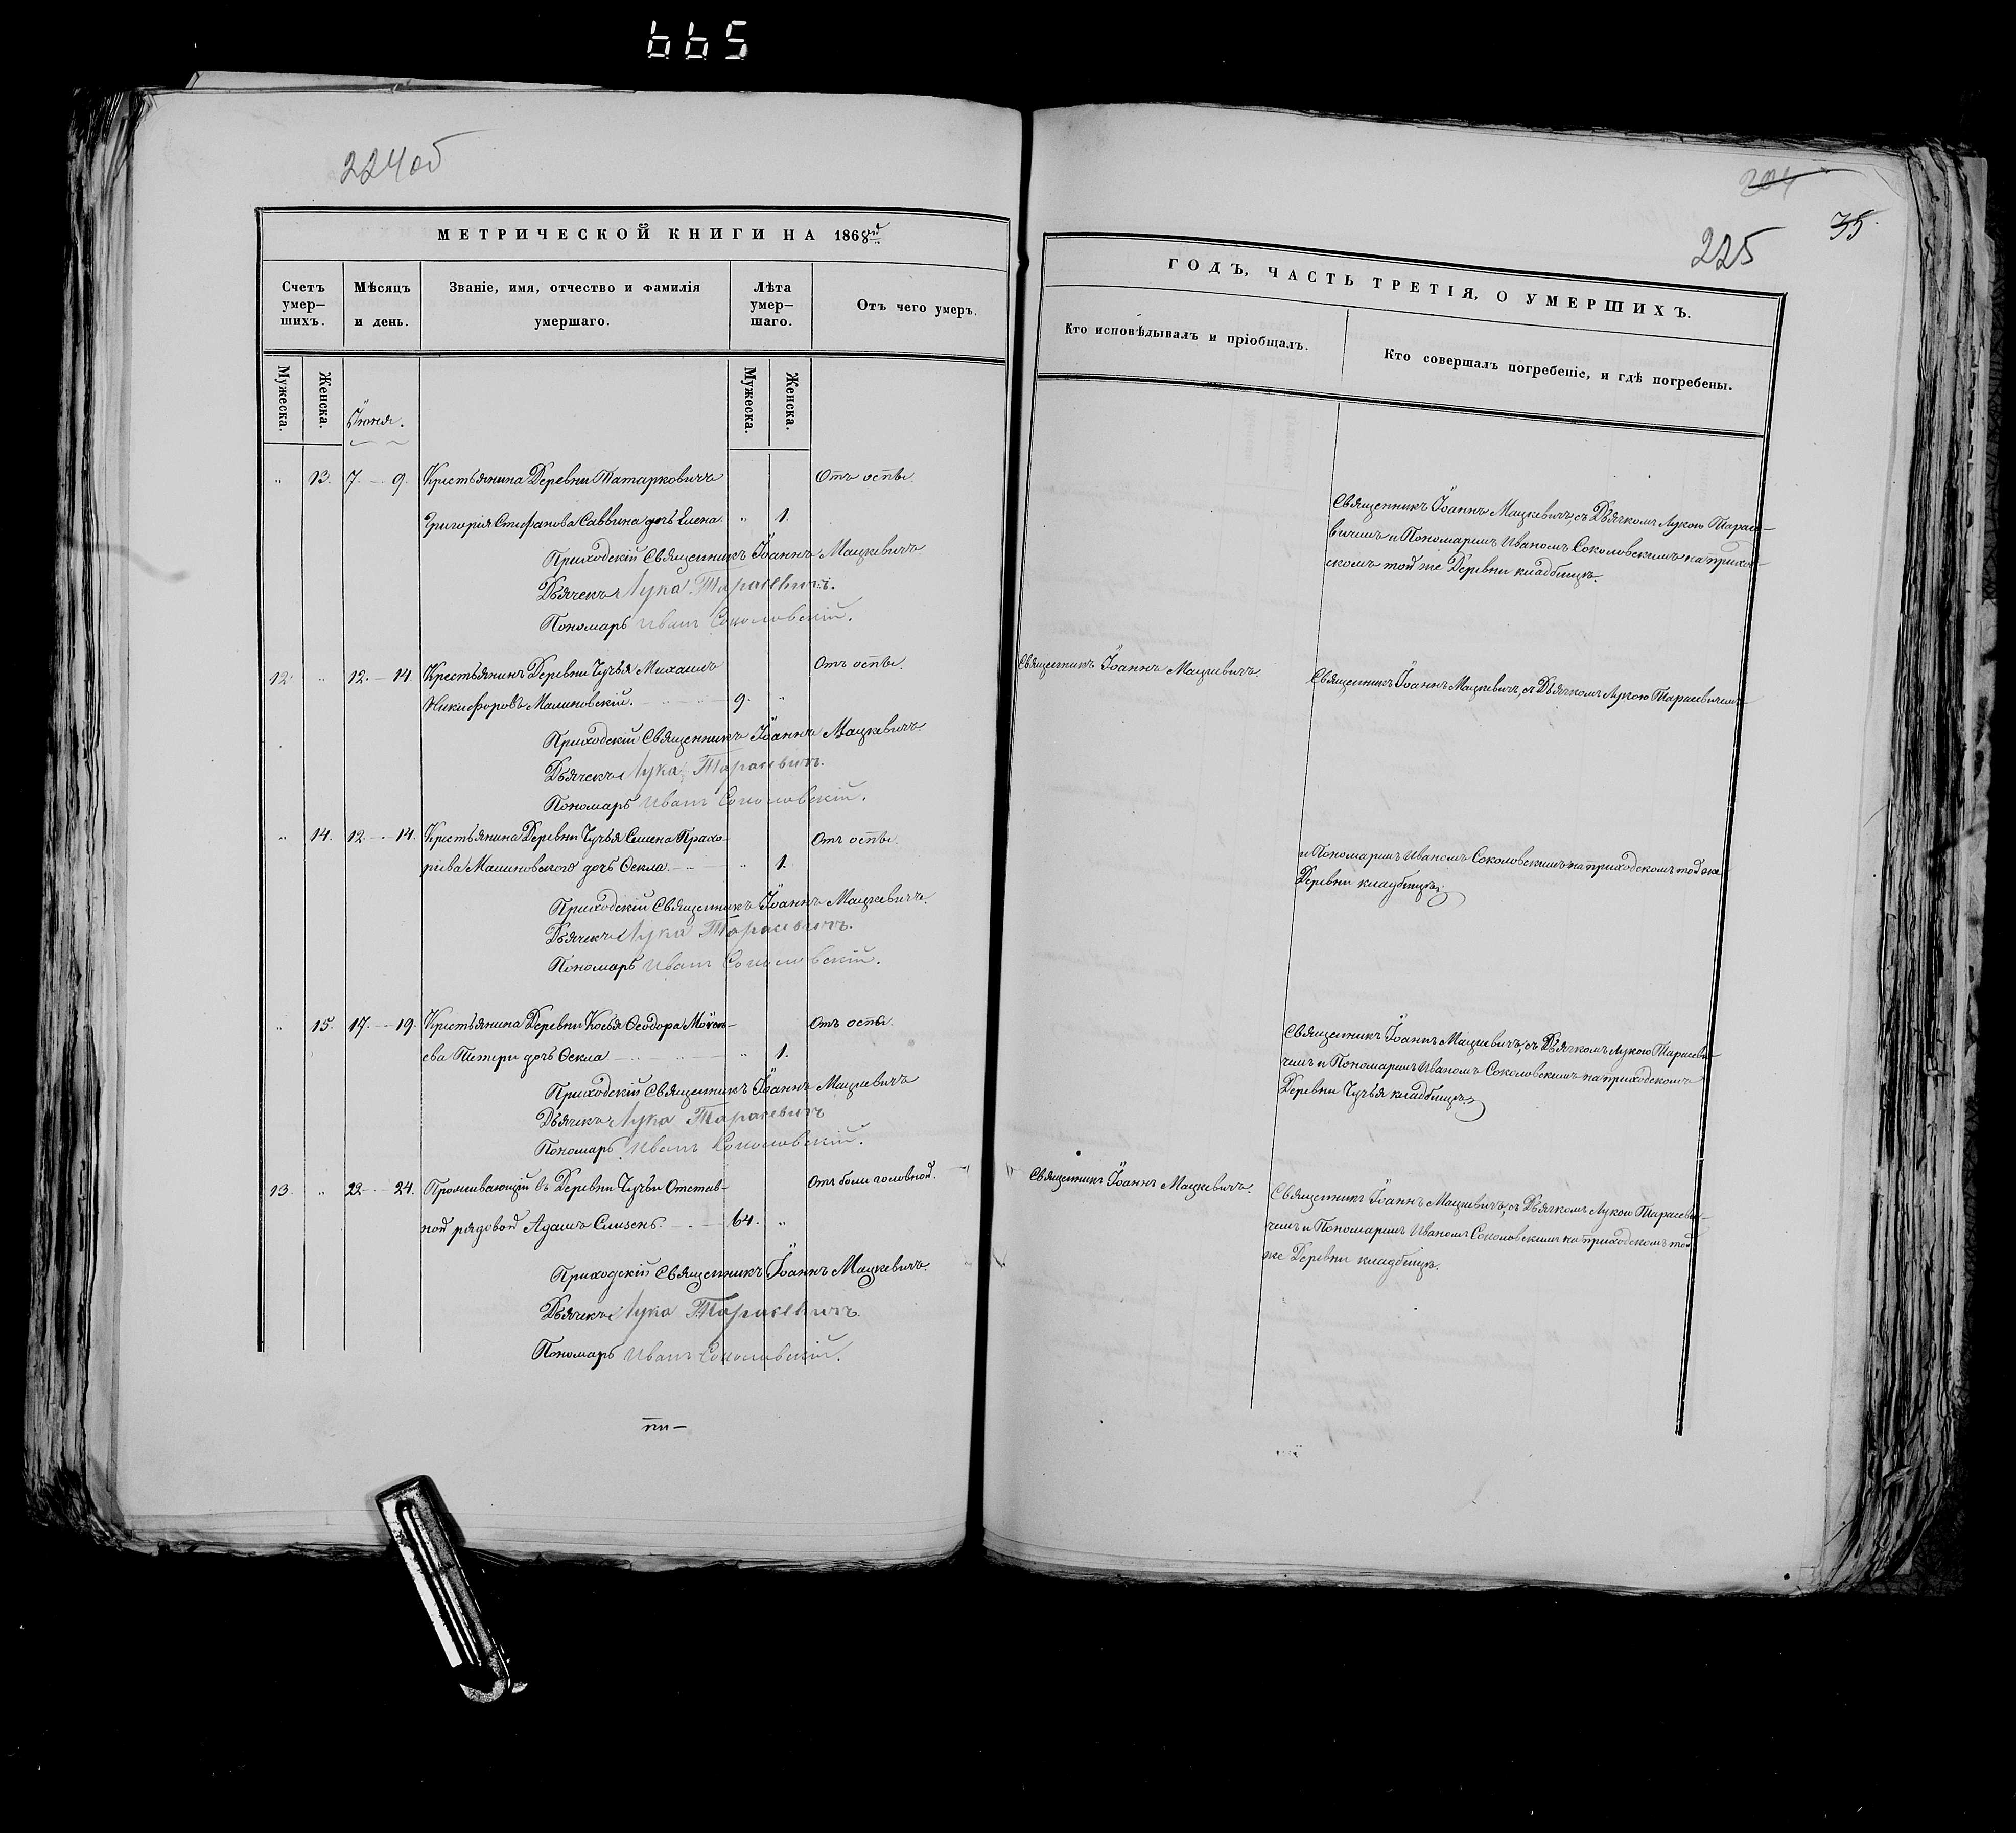 665
224об
МЕТРИЧЕСКОЙ КНИГИ НА 1868й
Счетъ умер-шихъ.
Мѣсяцъ и день.
Званіе, имя, отчество и фамилія умершаго.
Лѣта умер-шаго.
Отъ чего умеръ.
Мужеска.
Женска.
Мужеска.
Женска.
Іюня.
" 13. 7. — 9. Крестьянина Деревни Татарковичъ Отъ оспы.
Григорія Стефанова Саввина дочь Елена. " 1.
Приходскій Священникъ Іоаннъ Мацкевичъ
Дьячекъ Лука Тарасевичъ.
Пономарь Иванъ Соколовскій.
12. " 12. — 14. Крестьянинъ Деревни Чучья Михаилъ Отъ оспы.
Никифоровъ Малиновскій. 9. "
Приходскій Священникъ Іоаннъ Мацкевичъ.
Дьячекъ Лука Тарасевичъ.
Пономарь Иванъ Соколовскій.
" 14. 12. — 14. Крестьянина Деревни Чучья Семена Прахо- Отъ оспы.
ріева Малиновскаго дочь Ѳекла. " 1.
Приходскій Священникъ Іоаннъ Мацкевичъ.
Дьячекъ Лука Тарасевичъ.
Пономарь Иванъ Соколовскій.
" 15. 17. — 19. Крестьянина Деревни Косья Ѳеодора Отъ оспы.
дочь Ѳекла " 1.
Приходскій Священникъ Іоаннъ Мацкевичъ
Дьячекъ Лука Тарасевичъ
Пономарь Иванъ Соколовскій.
13. " 22. — 24. Проживающій въ Деревни Чучьи Отстав- Отъ боли головной.
ной рядовой Адамъ Слизень. 64. "
Приходскій Священникъ Іоаннъ Мацкевичъ.
Дьячекъ Лука Тарасевичъ.
Пономарь Иванъ Соколовскій.
204
35.
225
ГОДЪ, ЧАСТЬ ТРЕТІЯ, О УМЕРШИХЪ.
Кто исповѣдывалъ и пріобщалъ.
Кто совершалъ погребеніе, и гдѣ погребены.
Священникъ Іоаннъ Мацкевичъ, съ Дьячкомъ Лукою Тарасе-
вичемъ и Пономаремъ Иваномъ Соколовскимъ на приход-
скомъ той же Деревни кладбищѣ.
Священникъ Іоаннъ Мацкевичъ.
Священникъ Іоаннъ Мацкевичъ, съ Дьячкомъ Лукою Тарасевичемъ
и Пономаремъ Иваномъ Соколовскимъ на приходскомъ той же
Деревни кладбищѣ.
Священникъ Іоаннъ Мацкевичъ, съ Дьячкомъ Лукою Тарасеви-
чемъ и Пономаремъ Иваномъ Соколовскимъ на приходскомъ
Деревни Чучья кладбищѣ.
Священникъ Іоаннъ Мацкевичъ.
Священникъ Іоаннъ Мацкевичъ, съ Дьячкомъ Лукою Тарасеви-
чемъ и Пономаремъ Иваномъ Соколовскимъ на приходскомъ той
же Деревни кладбищѣ.